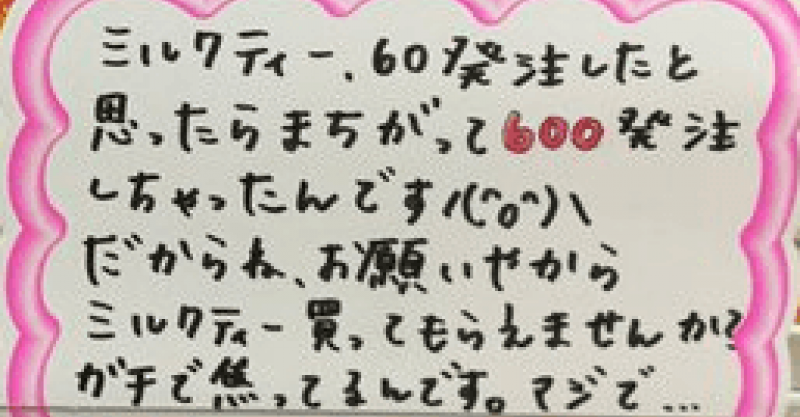 ミルクティー、60発注したと
思ったらまちがって600発注
しちゃったんです/(^o^)\
だからね、お願いやから
ミルクティー買ってもらえませんか?
ガチで焦ってるんです。マジで...